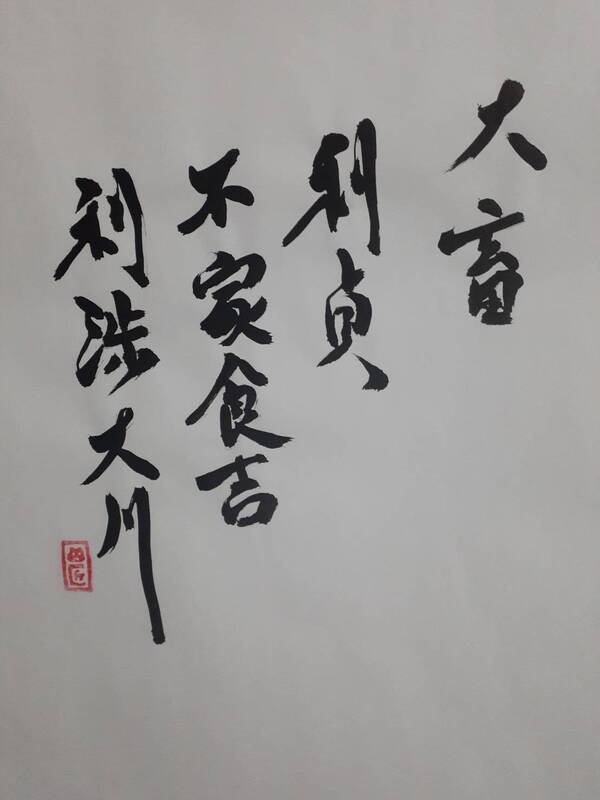 大畜
利貞
不家食吉
利涉大川